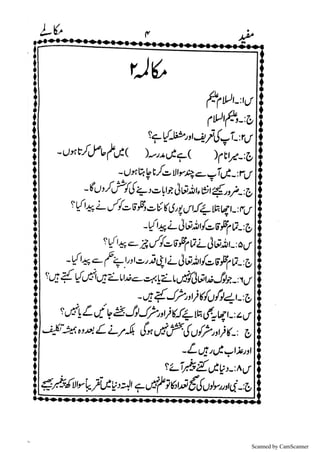 مفید ۴ مکالمے
مکالمہ ۲
س۱:۔ السلام علیکم
ج:۔ وعلیکم السلام
س۲:۔ آپ کی تعریف اور مشغلہ کیا ہے؟
ج:۔ میرا نام ( ) ہے میں مدرسہ ( ) میں علم حاصل کرتا ہوں۔
س۳:۔ میں آپ سے چند سوالات کرنا چاہتا ہوں۔
ج:۔ ضرور کیجئے انشاء اللہ تعالیٰ جوابات دینے کی کوشش کروں گا۔
س۴:۔ اچھا بتلائیے کہ اس پوری کائنات و مخلوقات کو کس نے پیدا کیا؟
ج:۔ تمام مخلوقات کو اللہ تعالیٰ نے پیدا کیا۔
س۵:۔ اللہ تعالیٰ نے تمام مخلوقات کو کس چیز سے پیدا کیا؟
ج:۔ تمام مخلوقات کو اللہ تعالیٰ نے اپنی قدرت اور اپنے حکم سے پیدا کیا۔
س۶:۔ جو لوگ خدا تعالیٰ کو نہیں مانتے یا بہت سے خدا مانتے ہیں انہیں کیا کہتے ہیں؟
ج:۔ ایسے لوگوں کو کافر اور مشرک کہتے ہیں۔
س۷:۔ اچھا یہ بھی بتلائیے کہ کافر اور مشرک لوگ بخشے جائیں گے یا نہیں؟
ج :۔ کافر اور مشرکوں کی بخشش نہیں ہوگی بلکہ مرنے کے بعد وہ ہمیشہ تکلیف
اور عذاب میں رہیں گے۔
س۸:۔ دنیا میں کتنے پیغمبر آئے؟
ج:۔ نبی اور رسولوں کی صحیح تعداد کا تو علم نہیں ہے البتہ دنیا میں تقریباً سوا لاکھ پیغمبر بھیجے
Scanned by CamScanner